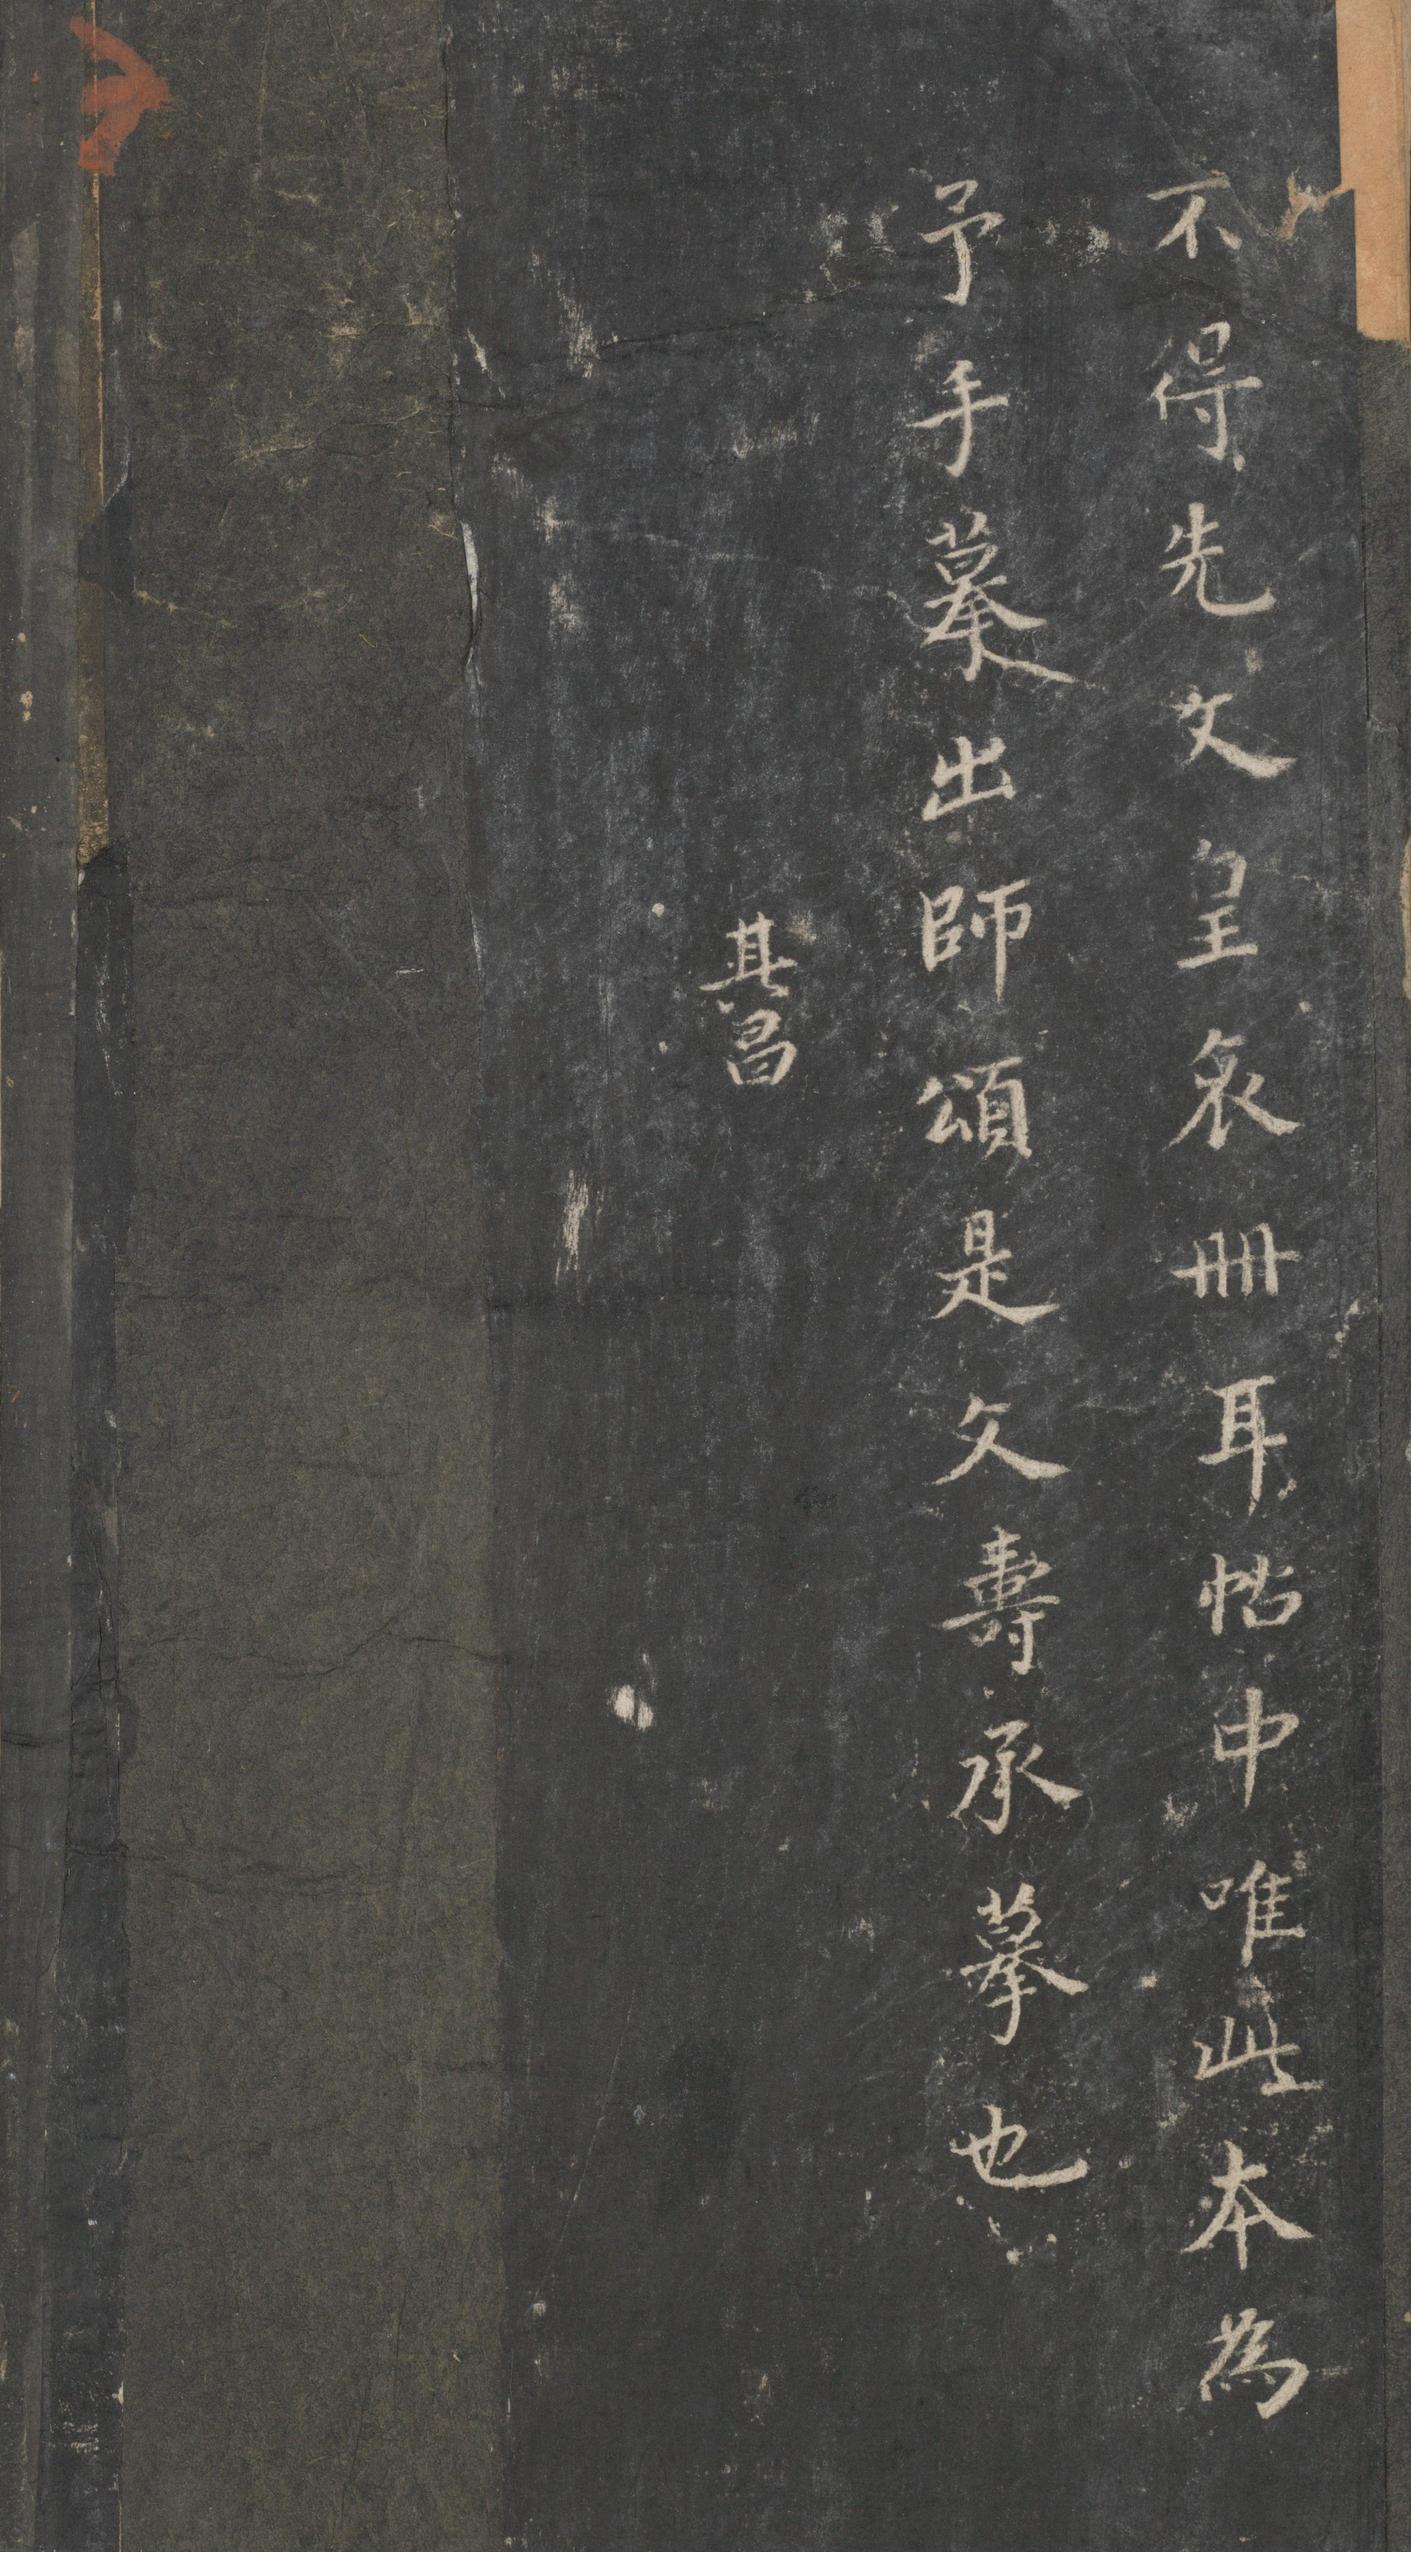 不得先文皇哀冊耳帖中唯此本為
予手摹出師頌是文壽承摹也
其昌